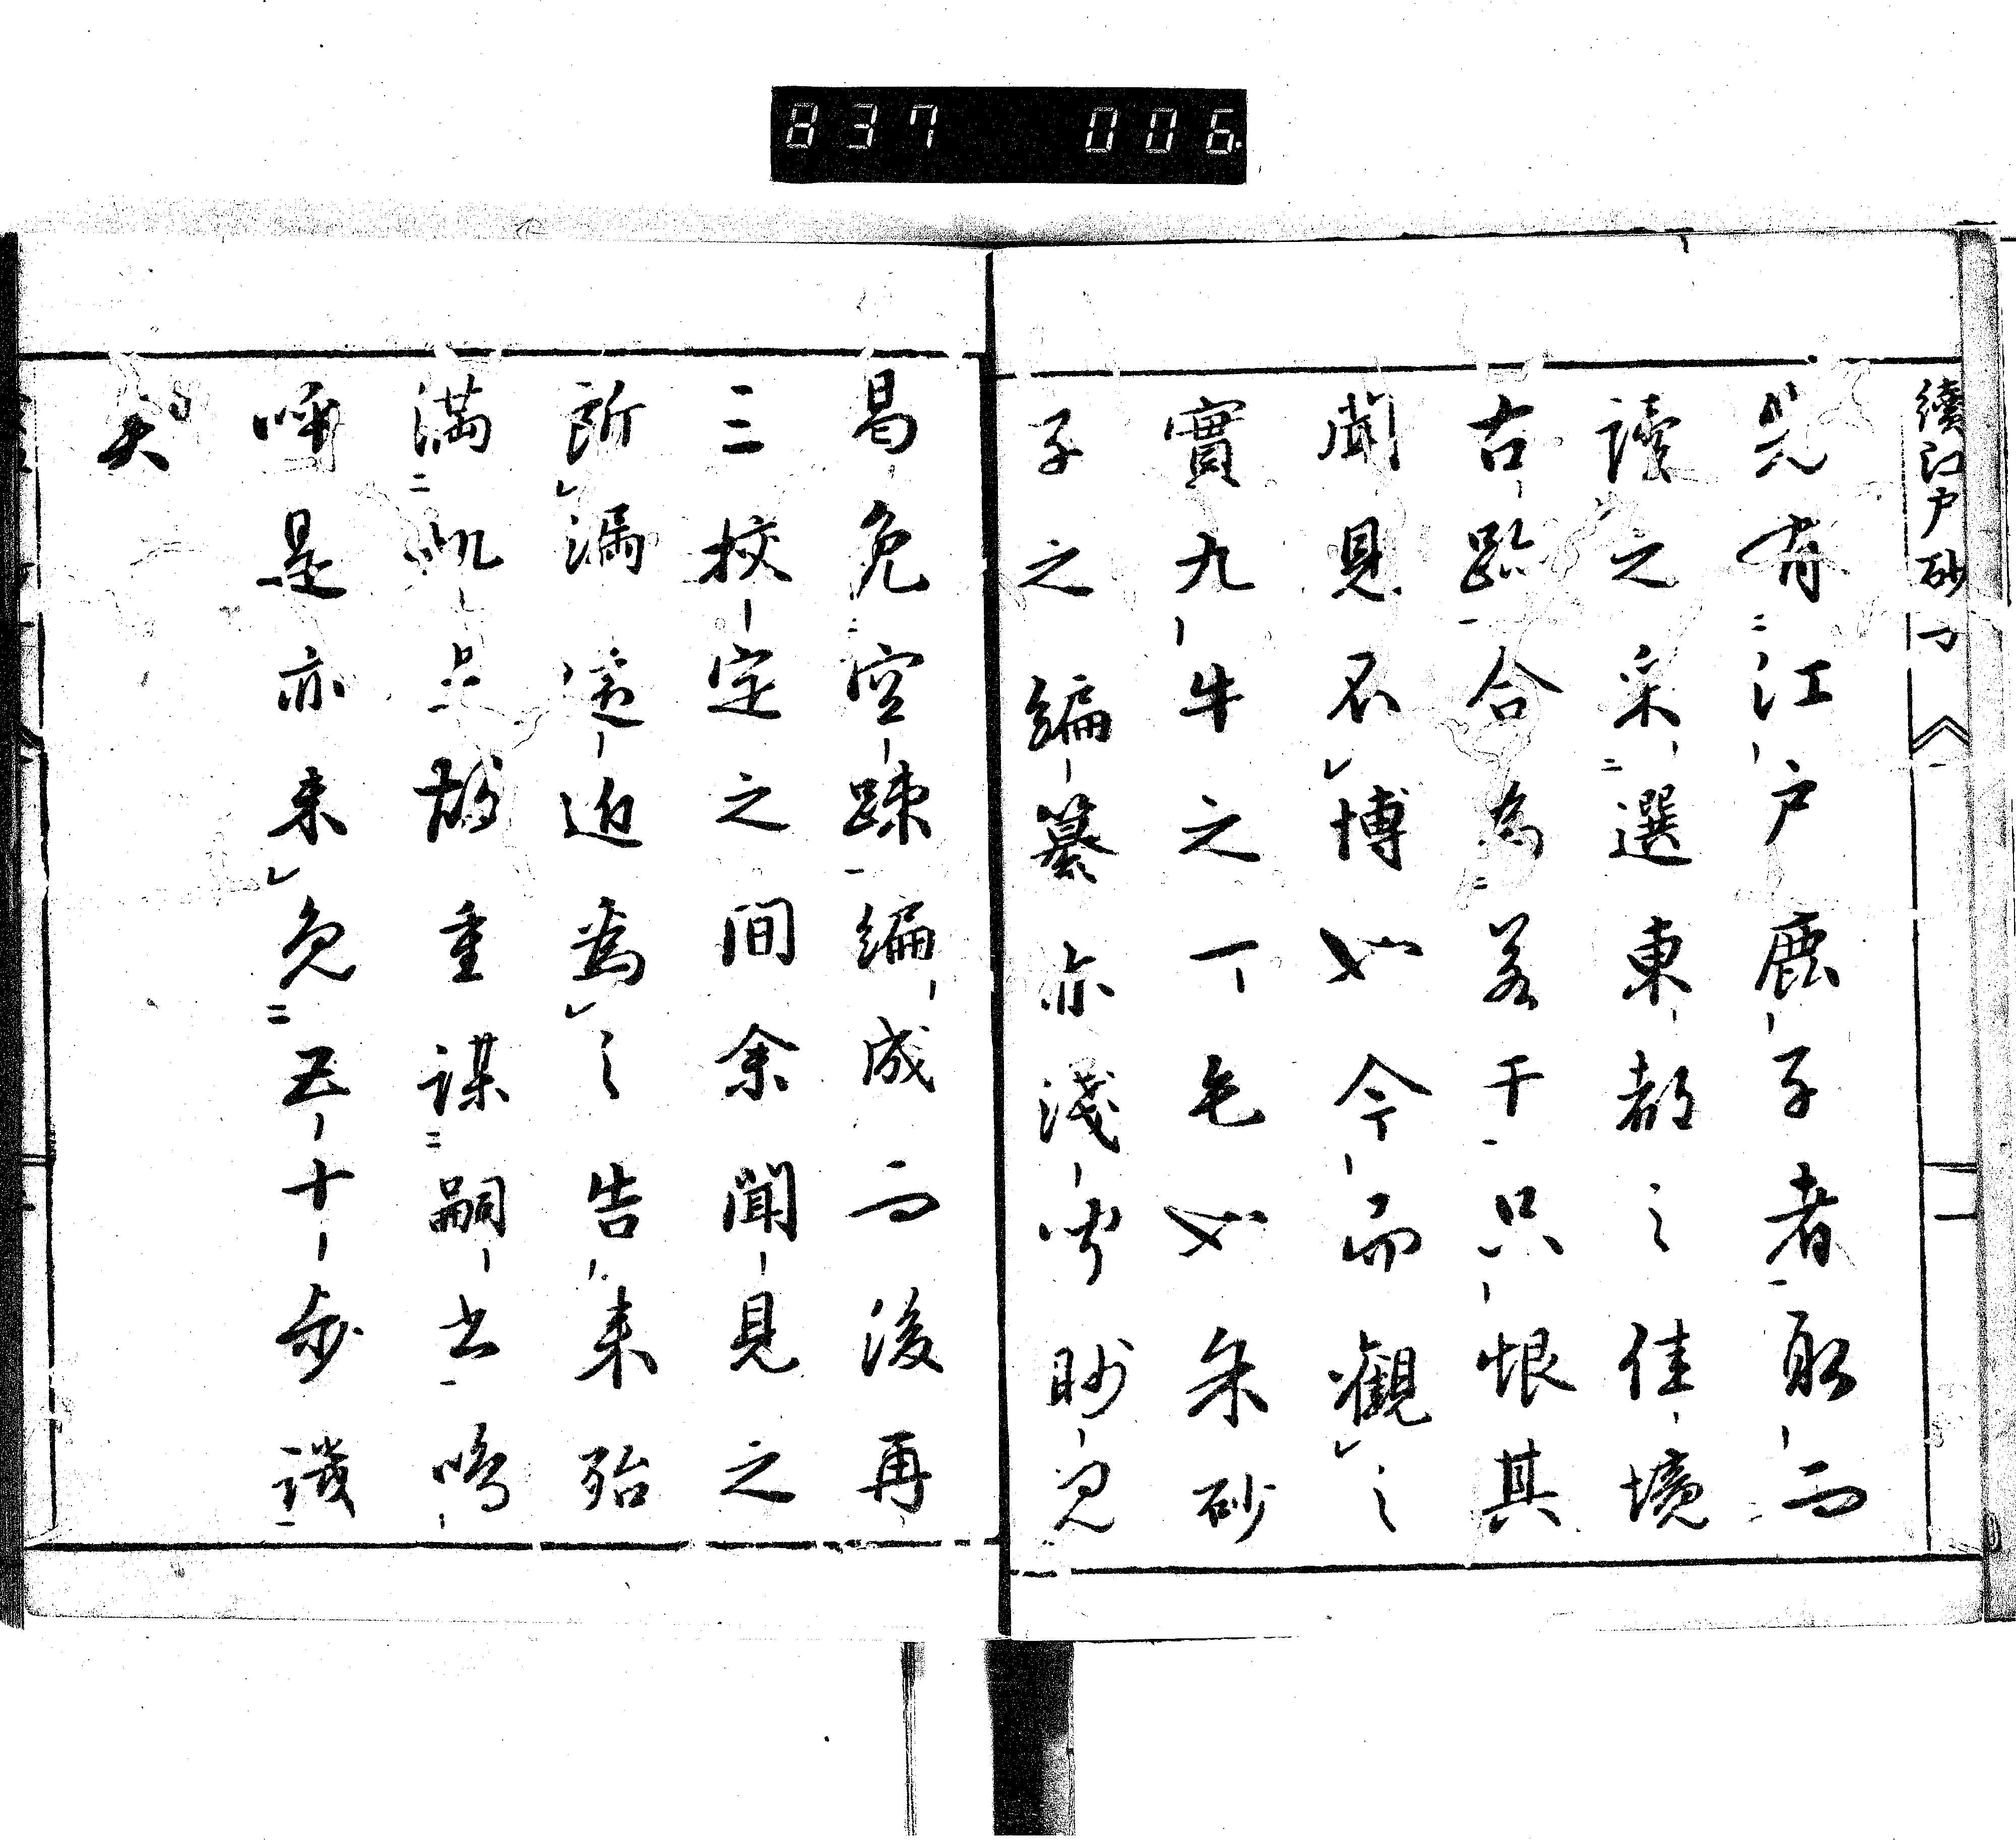 837 006
續江戸砂 一
先有江戸鹿子者取而
讀之采選東都之佳境
古跡合為若干只恨其
聞見不博如今而觀之
實九牛之一毛如朱砂
子之編纂亦淺聞眇見
曷免空疎編成而後再
三挍定之間余聞見之
所漏遠近為之告来殆
満 是故重謀嗣出嗚
呼是亦未免五十歩譏
矣